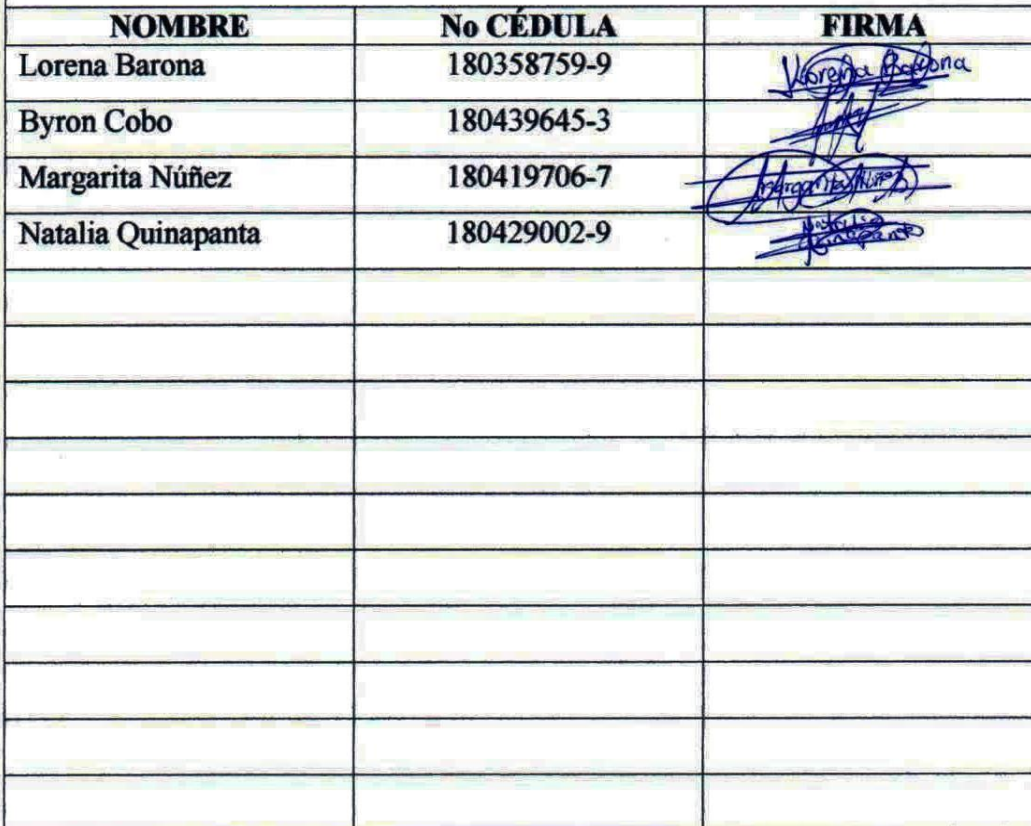 NOMBRE No CÉDULA FIRMA
Lorena Barona 180358759-9 Lorena Barona
Byron Cobo 180439645-3
Margarita Núñez 180419706-7 Margarita Núñez
Natalia Quinapanta 180429002-9 Natalia Quinapanta